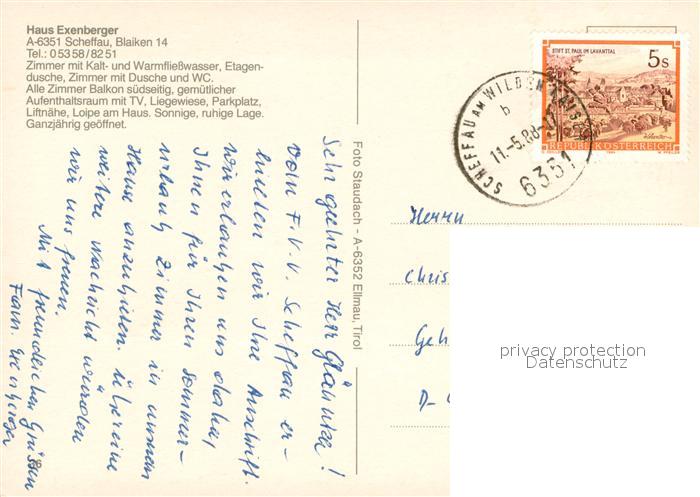 Haus Exenberger
A-6351 Scheffau, Blaiken 14
Tel.: 0 53 58 / 82 51
Zimmer mit Kalt- und Warmfließwasser, Etagen-
dusche, Zimmer mit Dusche und WC.
Alle Zimmer Balkon südseitig, gemütlicher
Aufenthaltsraum mit TV, Liegewiese, Parkplatz,
Liftnähe, Loipe am Haus. Sonnige, ruhige Lage.
Ganzjährig geöffnet.
Sehr geehrter Herr !
Vom F.V.V. Scheffau er-
hielten wir Ihre Anschrift.
Wir erlauben uns daher,
Ihnen für Ihren Sommer-
urlaub Zimmer in unserem
Hause anzubieten. Über eine
weitere Nachricht würden
wir uns freuen.
Mit freundlichen Grüssen
Fam. Exenberger
Foto Staudach - A-6352 Ellmau, Tirol
STIFT ST. PAUL IM LAVANTTAL
5 S
REPUBLIK ÖSTERREICH
SCHEFFAU AM WILDEN KAISER
b
11.-5.88
6351
Herrn
Chris
Geh
D-
privacy protection
Datenschutz